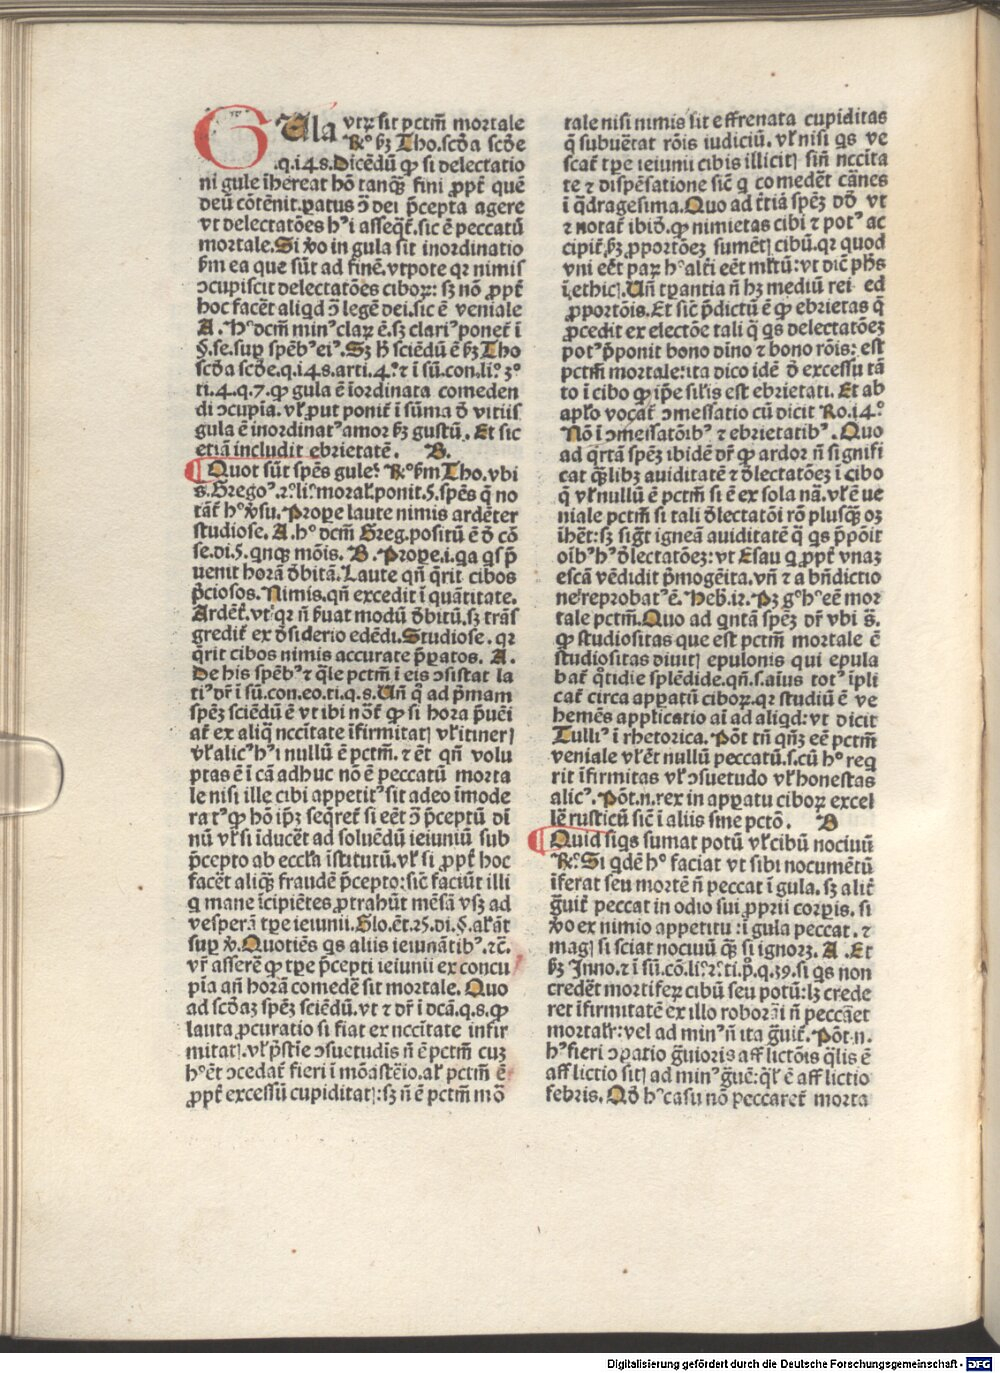 GUla vtrꝫ sit pctm̄ mortale
℞º ẜꝫ Tho.scďa scďe
.q.148.Dicēdū ꝙ si delectatio
ni gule īhereat hō tanqꝫ̄ fini ꝓpt̄ quē
deū cōtēnit.ꝑatus ↄ̄ dei p̄cepta agere
vt delectatōes hꝰi asseqt̄.sic ē peccatū
mortale.Si ꝟo in gula sit inordinatio
ẜm ea que sūt ad finē.vtpote qꝛ nimis
ↄcupiscit delectatōes ciboꝝ: sꝫ nō ꝓpt̄
hoc facēt aliqd ↄ̄ legē dei.sic ē veniale
A. Hº dcm̄ minꝰ claꝝ ē.sꝫ clariꝰ ponet̄ ī
§.se.suꝑ spēbꝰ eiꝰ. Sꝫ h̄ sciēdū ē ẜꝫ Tho
scďa scďe.q.148.arti.4.º ⁊ ī sū.con.li.º 3º
ti.4.q.7.ꝙ gula ē īordinata comeden
di ↄcupīa. vl̄ ꝓut ponit̄ ī sūma ď vitiis
gula ē inordinatꝰ amor ẜꝫ gustū. Et sic
etiā includit ebrietatē. B.
Quot sūt spēs gule: ℞º ẜm Tho. vbi
s.Gregoꝰ.2.º li.º moral̄.ponit.5.spēs q̄ no
tāt̄ hº ꝟsu. Prope laute nimis ardēter
studiose. A.hº dcm̄ Greg.positū ē ď cō
se.di.5.qnqꝫ mōis. B. Prope.i.qa qs p̄
uenit horā ďbitā.Laute qn̄ q̄rit cibos
p̄ciosos. Nimis.qn̄ excedit ī quātitate.
Ardēt̄.vt qꝛ n̄ ẜuat modū ďbitū.sꝫ trās
gredit̄ ex ďsiderio edēdi.Studiose. qꝛ
q̄rit cibos nimis accurate p̄ꝑatos. A.
De his spēbꝰ ⁊ q̄le pctm̄ ī eis ↄsistat la
tiꝰ dr̄ ī sū.con.eo.ti.q.s.Un̄ q̄ ad p̄mam
spēꝫ sciēdū ē vt ibi nōt̄ ꝙ si hora p̄uēi
at̄ ex aliq̄ nccitate īfirmitatꝭ vl̄ itinerꝭ
vl̄ alicꝰ hꝰi nullū ē pctm̄. ⁊ ēt qn̄ volu
ptas ē ī cā adhuc nō ē peccatū morta
le nisi ille cibi appetitꝰ sit adeo īmode
ratꝰ ꝙ hō ip̄ꝫ seqret̄ si eēt ↄ̄ p̄ceptū di
nū vl̄ si īducēt ad soluēdū ieiuniū sub
p̄cepto ab eccl̄a īstitutū.vl̄ si ꝓpt̄ hoc
facēt aliqꝫ̄ fraudē p̄cepto:sic̄ faciūt illi
q mane īcipiētes ꝓtrahūt mēsā vsꝫ ad
vesperā tꝑe ieiunii. Glo.ēt.25.di.§.al̄āt
suꝑ ꝟ.Quotiēs qs aliis ieiunātibꝰ.⁊c̄.
vr̄ asserē ꝙ tꝑe p̄cepti ieiunii ex concu
pīa an̄ horā comedē sit mortale. Quo
ad scďaꝫ spēꝫ sciēdū. vt ⁊ dr̄ ī dcā.q.s.ꝙ
lauta ꝓcuratio si fiat ex nccitate infir
mitatꝭ.vl̄ p̄stīe ↄsuetudis n̄ ē pctm̄ cuꝫ
hº ēt ↄcedat̄ fieri ī mōastēio.al̄ pctm̄ ē
ꝓpt̄ excessū cupiditatꝭ:sꝫ n̄ ē pctm̄ mō
rtale nisi nimis sit effrenata cupiditas
q̄ subuētat rōis iudiciū. vl̄ nisi qs ve
scat̄ tꝑe ieiunii cibis illicitꝭ sin̄ nccita
te ⁊ dispēsatione sic̄ q comedēt cānes
ī q̄dragesima.Quo ad t̄tiā spēꝫ dď vt
⁊ notat̄ ibid.ꝙ nimietas cibi ⁊ potꝰ ac
cipit̄.ẜꝫ ꝓportōeꝫ sumētꝭ cibū.qꝛ quod
vni eēt paꝝ hº alt̄i eēt ml̄tū:vt dic̄ ph̄s
ī.ethicꝭ. Un̄ tꝑantia n̄ hꝫ mediū rei ed
ꝓportōis.Et sic̄ p̄dictū ē ꝙ ebrietas q̄
ꝓcedit ex electōe tali q̄ qs delectatōeꝫ
potꝰ p̄ponit bono dīno ⁊ bono rōis: est
pctm̄ mortale:ita dico idē ď excessu tā
to ī cibo ꝙ ip̄e sil̄is est ebrietati. Et ab
apl̄o vocat̄ ↄmessatio cū dicit Ro.14.º
Nō ī ↄmessatōibꝰ ⁊ ebrietatibꝰ. Quo
ad q̄rtā spēꝫ ibidē dr̄ ꝙ ardor n̄ signifi
cat qꝫ̄libꝫ auiditatē ⁊ ďlectatōeꝫ ī cibo
q̄ vl̄ nullū ē pctm̄ si ē ex sola nā.vl̄ ē ue
niale pctm̄ si tali ďlectatōi rō plusqꝫ̄ oꝫ
īhēt:sꝫ sigt̄ igneā auiditatē q̄ qs p̄pōit
oībꝰ hꝰ ďlectatōeꝫ: vt Esau q ꝓpt̄ vnaꝫ
escā vēdidit p̄mogēita.vn̄ ⁊ a bn̄dictio
ne reprobatꝰ ē. Heb.12. Pꝫ gº hº eē mor
tale pctm̄.Quo ad qntā spēꝫ dr̄ vbi s̄.
ꝙ studiositas que est pctm̄ mortale ē
studiositas diuitꝭ epulonis qui epula
bat̄ q̊tidie splēdide.qn̄.s.aīus totꝰ īpli
cat̄ circa apꝑatū ciboꝝ.qꝛ studiū ē ve
hemēs applicatio aī ad aliqd: vt dicit
Tulliꝰ ī rhetorica. Pōt tn̄ qn̄ꝫ eē pctm̄
veniale vl̄ ēt nullū peccatū.s.cū hº req
rit īfirmitas vl̄ ↄsuetudo vl̄ honestas
alicꝰ. Pōt.n.rex in apꝑatu ciboꝝ excel
lē rusticū sic̄ ī aliis sine pctō. B
Quid siqs sumat potū vl̄ cibū nociuū
℞º. Si qdē hº faciat vt sibi nocumētū
īferat seu mortē n̄ peccat ī gula. sꝫ alit̄
ḡuit̄ peccat in odio sui ꝓprii corꝑis. si
ꝟo ex nimio appetitu : ī gula peccat. ⁊
magꝭ si sciat nociuū qꝫ̄ si ignorꝫ. A. Et
ẜꝫ Inno.⁊ ī sū.cō.li.º 2.º ti.p̊.q.39.si qs non
credēt mortifeꝝ cibū seu potū:lꝫ crede
ret īfirmitatē ex illo roborāi n̄ peccaēt
mortalr̄: vel ad minꝰ n̄ ita ḡuit̄. Pōt.n.
hꝰ fieri ↄꝑatio ḡuioris afflictōis q̄lis ē
afflictio sitꝭ ad minꝰ ḡuē:q̄l̄ ē afflictio
febris. Qď hº casu nō peccaret̄ morta
Digitalisierung gefördert durch die Deutsche Forschungsgemeinschaft - DFG